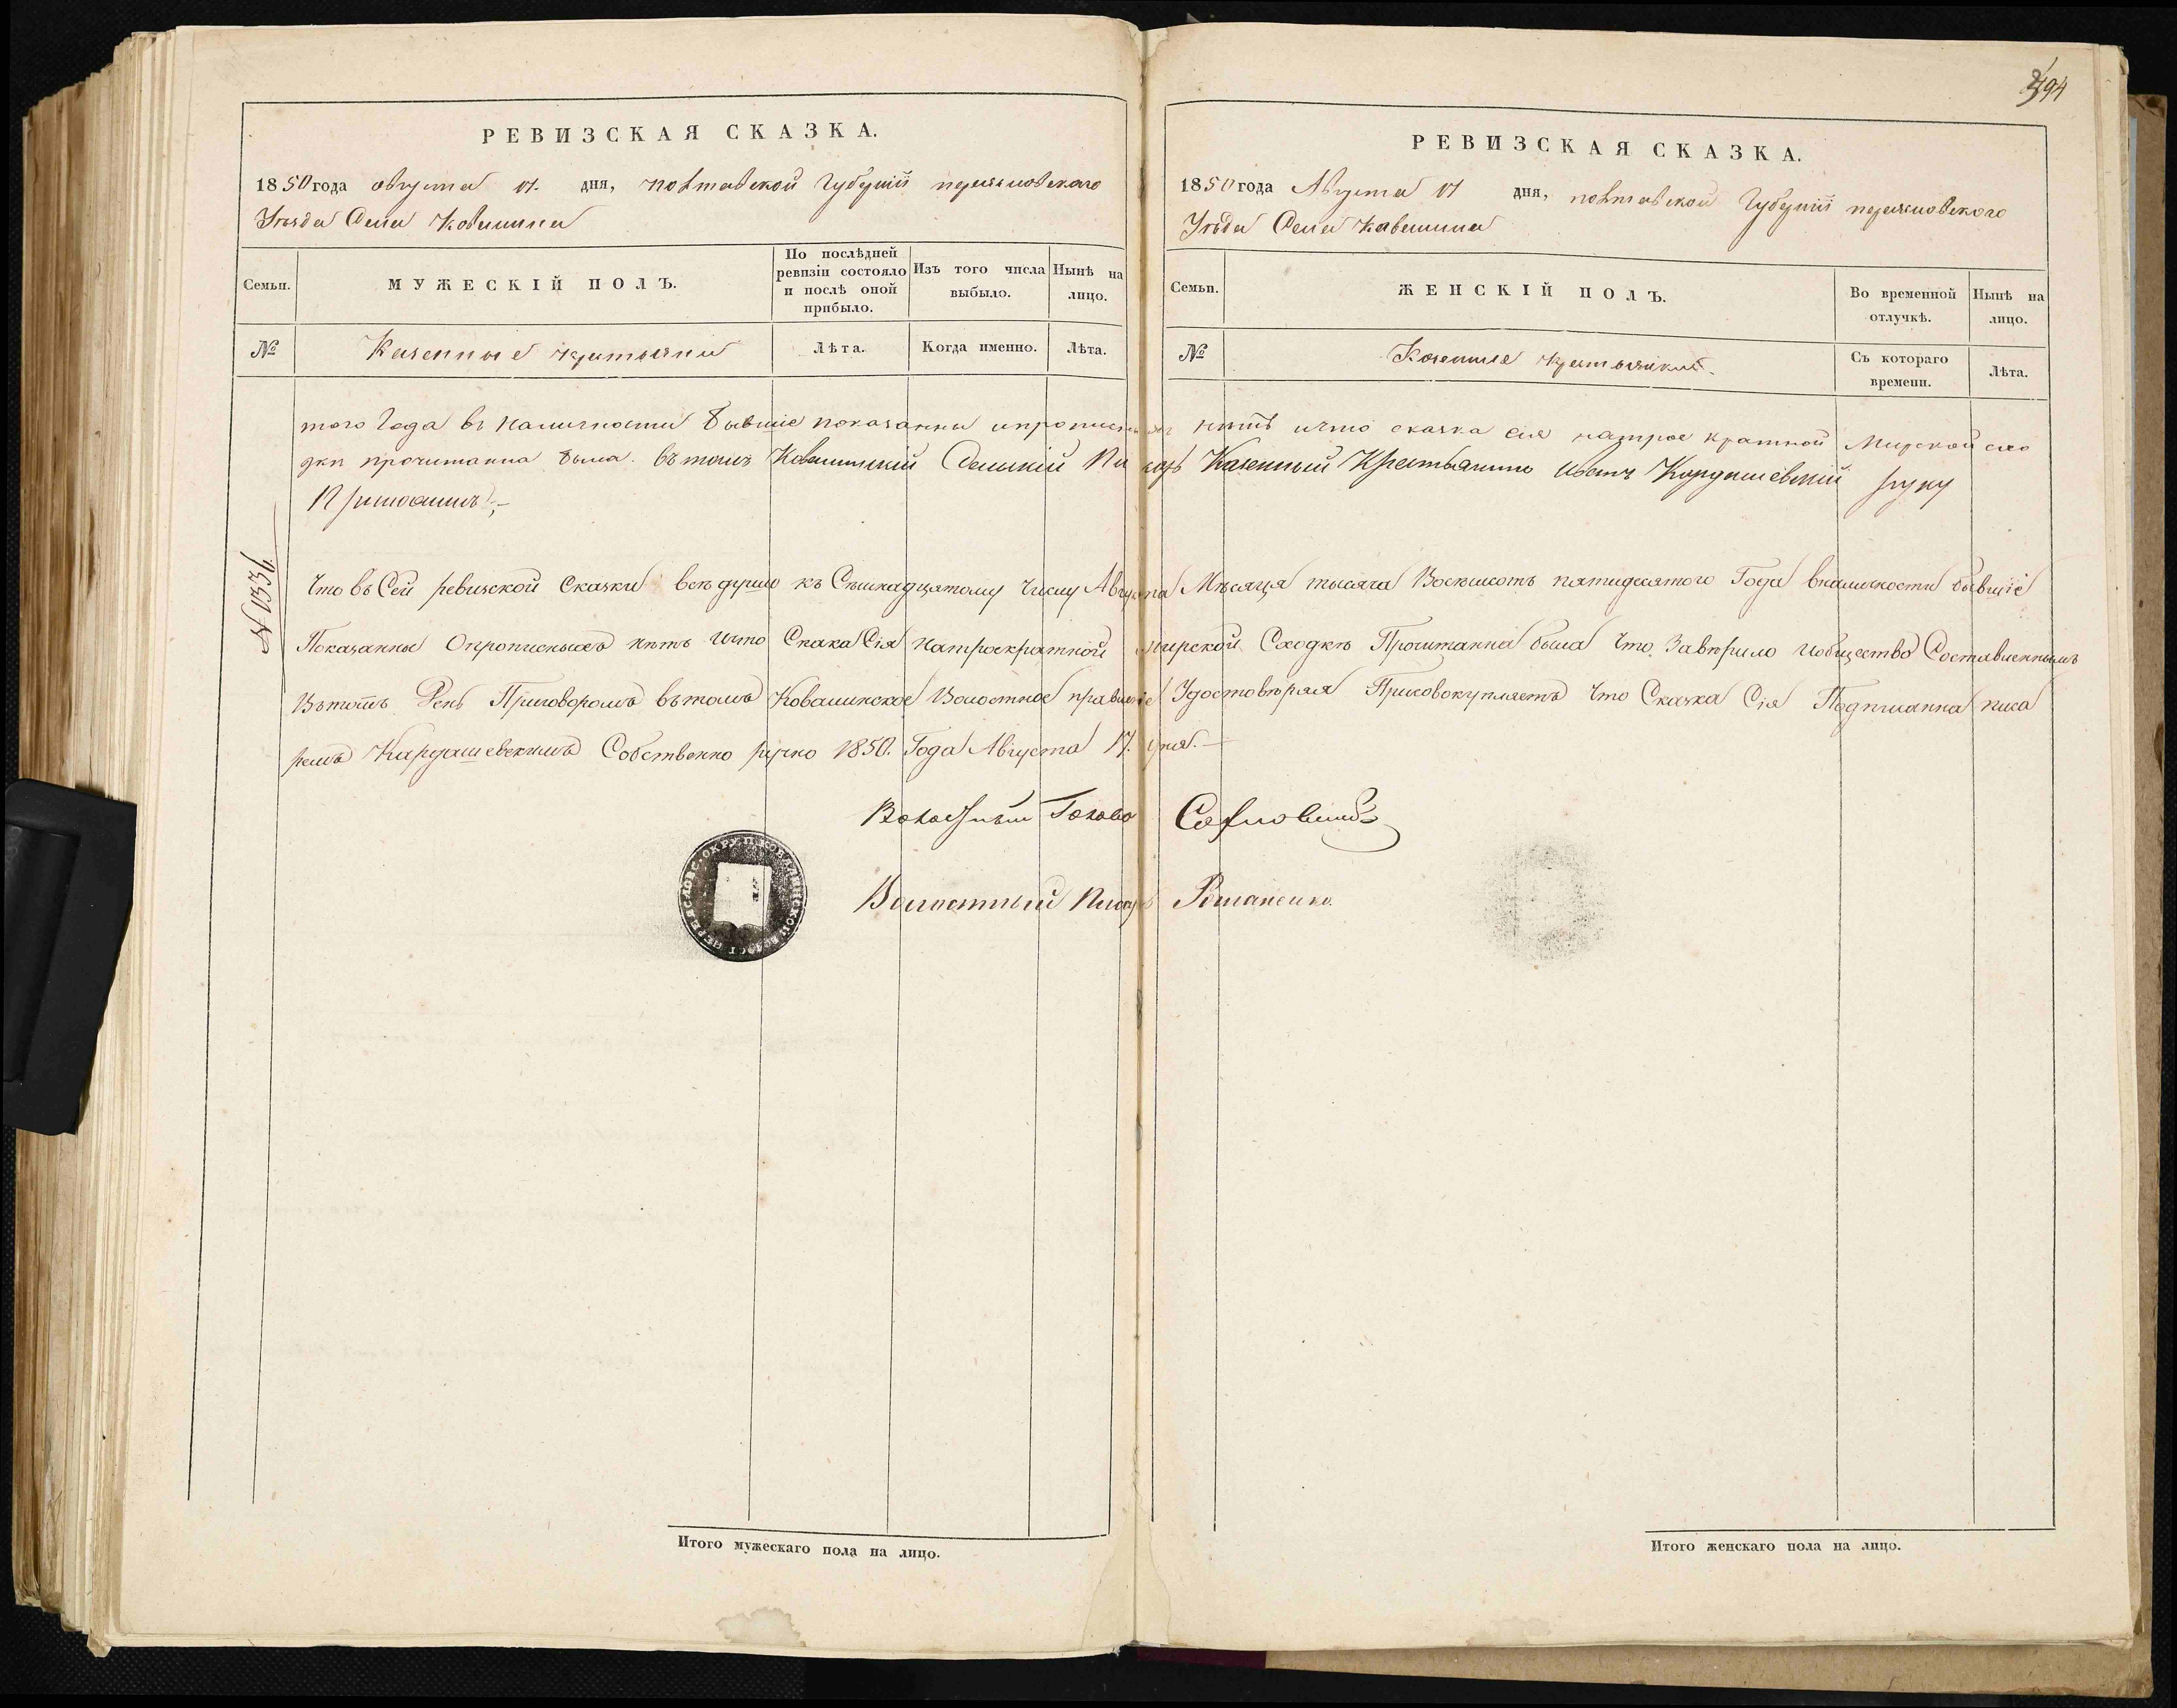 394
РЕВИЗСКАЯ СКАЗКА.
1850 года августа 17. дня, полтавской Губерніи переяславского
Уезда Села Ковалина
Семьи.
МУЖЕСКІЙ ПОЛЪ.
По послѣдней ревизіи состояло и послѣ оной прибыло.
Изъ того числа выбыло.
Нынѣ на лицо.
№
Казенные крестьяни
Лѣта.
Когда именно.
Лѣта.
РЕВИЗСКАЯ СКАЗКА.
1850 года Августа 17 дня, полтавской Губерніи переясловского
Уѣзда Села Кавалина
Семьи.
ЖЕНСКІЙ ПОЛЪ.
Во временной отлучкѣ.
Нынѣ на лицо.
№
Казенные крестьянки.
Съ котораго времени.
Лѣта.
того Года въ наличности бывшіе показанны ипрописныхъ нѣтъ ичто сказка сія натрое кратной Мирской схо
дки прочитанна была. въ томъ Ковалинскій Сельскій Писарь Казенный Крестьянинъ Кордашевскій руку
Приложилъ,-
№ 1036.
Что въ Сей ревизской Сказки всѣ души къ Семнадцятому Числу Августа Мѣсяця тысяча Восемсотъ пятидесятого Года вналичности бывшіе
Показанны Опрописныхъ нѣтъ Ичто Скака Сія натроекратной мирской Сходкѣ Прочитанна была Что Завѣрило Иобщество Составленнымъ
Вътотъ День Приговоромъ вътомъ Ковалинское Волостное правленіе Удостовѣряя Присовокупляетъ Что Сказка Сія Подписанна писа
ремъ Кардашевскимъ Собственно ручно 1850. Года Августа 17. дня.—
Волостный Голова
Волостный Писарь Романенко.
ПЕРЕЯСЛОВС. ОКРУГ. КОВАЛИНСКОЙ ВОЛОСТ
Итого мужескаго пола на лицо.
Итого женскаго пола на лицо.